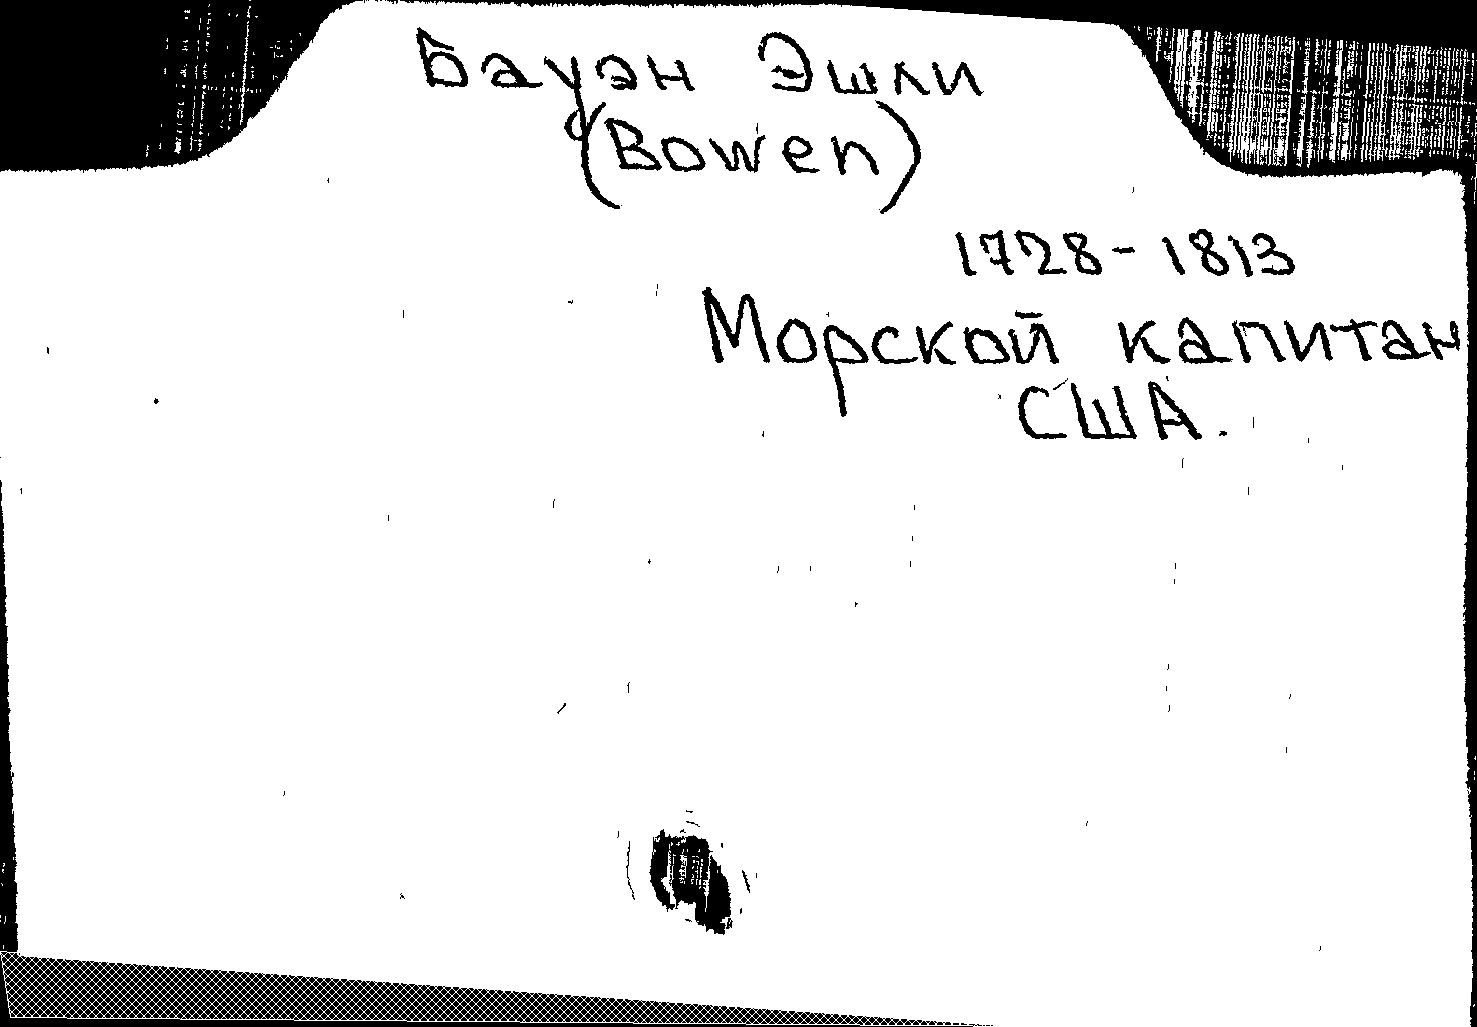 Бауэн Эшли
(Bowen)
1728-1813
Морской капитан
США.